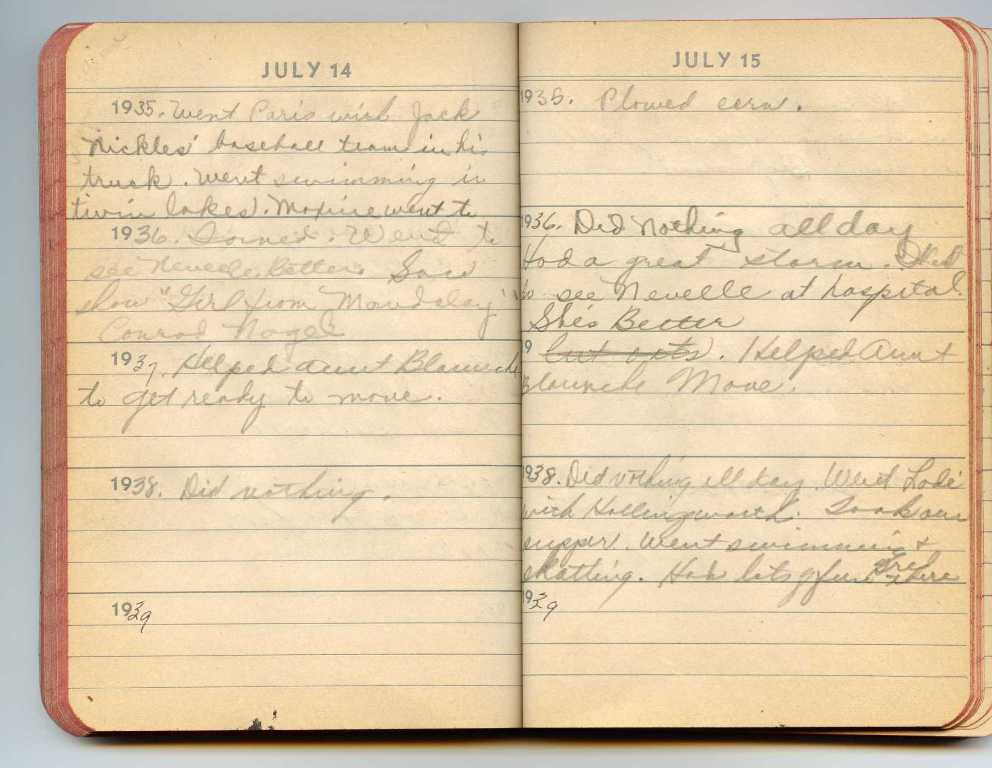 JULY 14
1935. Went Paris with Jack
Nickles' baseball team in his
truck. Went swimming in
twin lakes. Maxine went to
1936. Went to
see Nevelle. Better. Saw
show "Girl from Mandalay"
Conrad Nagel
1937. Helped aunt Blaunche
to get ready to move.
1938. Did nothing.
1939
JULY 15
1935. Plowed corn.
1936. Did Nothing all day
Had a great storm.
to see Nevelle at hospital.
She's Better
19 Cut oats. Helped Aunt
Blaunche Move.
1938. Did nothing all day. Went Lodi
with Hollingworth. Took our
supper. Went swimming +
skatting. Had lots of fun. there
1939